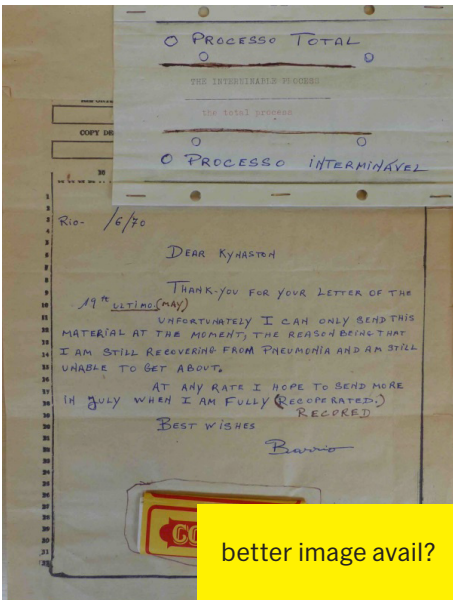 O PROCESSO TOTAL
THE INTERMINABLE PROCESS
the total process
O PROCESSO INTERMINÁVEL
COPY DE
10
Rio- /6/70
DEAR KYNASTON
THANK-YOU FOR YOUR LETTER OF THE
19th ULTIMO.(MAY)
UNFORTUNATELY I CAN ONLY SEND THIS
MATERIAL AT THE MOMENT, THE REASON BEING THAT
I AM STILL RECOVERING FROM PNEUMONIA AND AM STILL
UNABLE TO GET ABOUT.
AT ANY RATE I HOPE TO SEND MORE
IN JULY WHEN I AM FULLY (RECOPERATED.)
RECORED
BEST WISHES
Barrio
better image avail?